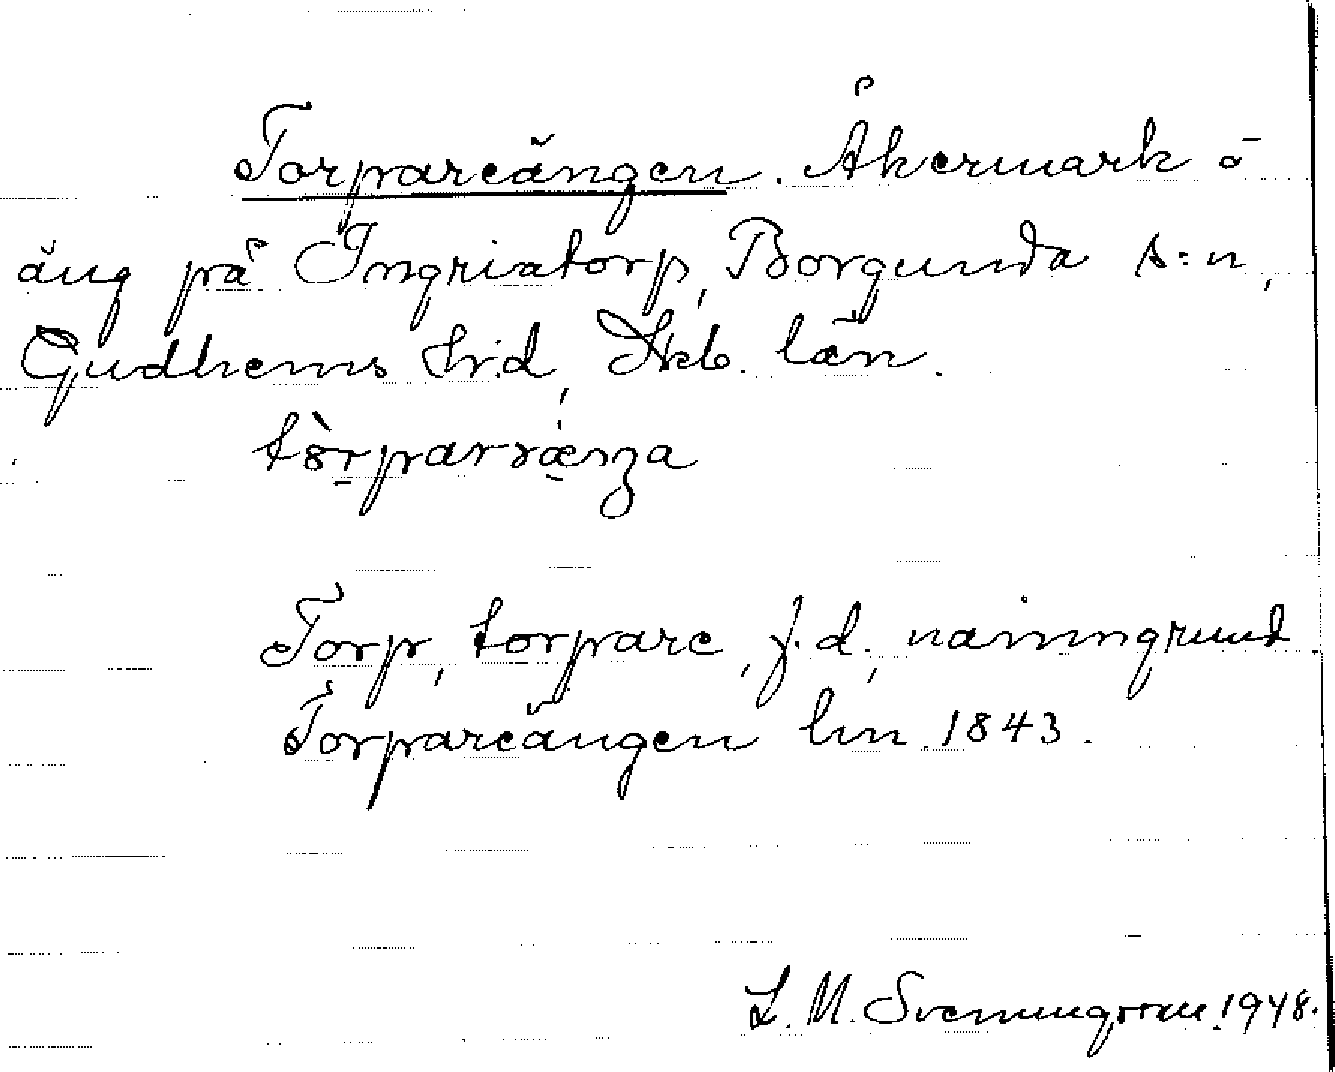 Torpareängen. Åkermark o
äng på Ingriatorp, Borgunda s:n,
Gudhems h:d, Skb. län.
Torp, torpare, f.d., namngrund.
Torpareängen lm 1843.
L. M. Svenungsson 1948.